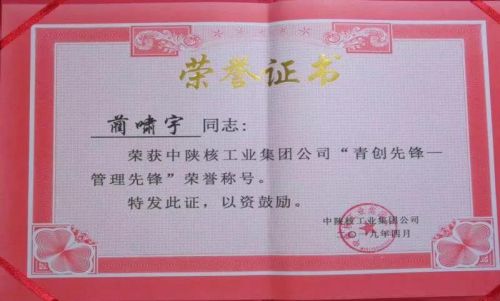 荣誉证书
蔺啸宇 同志：
荣获中陕核工业集团公司“青创先锋—
管理先锋”荣誉称号。
特发此证，以资鼓励。
中陕核工业集团公司
二〇一九年四月